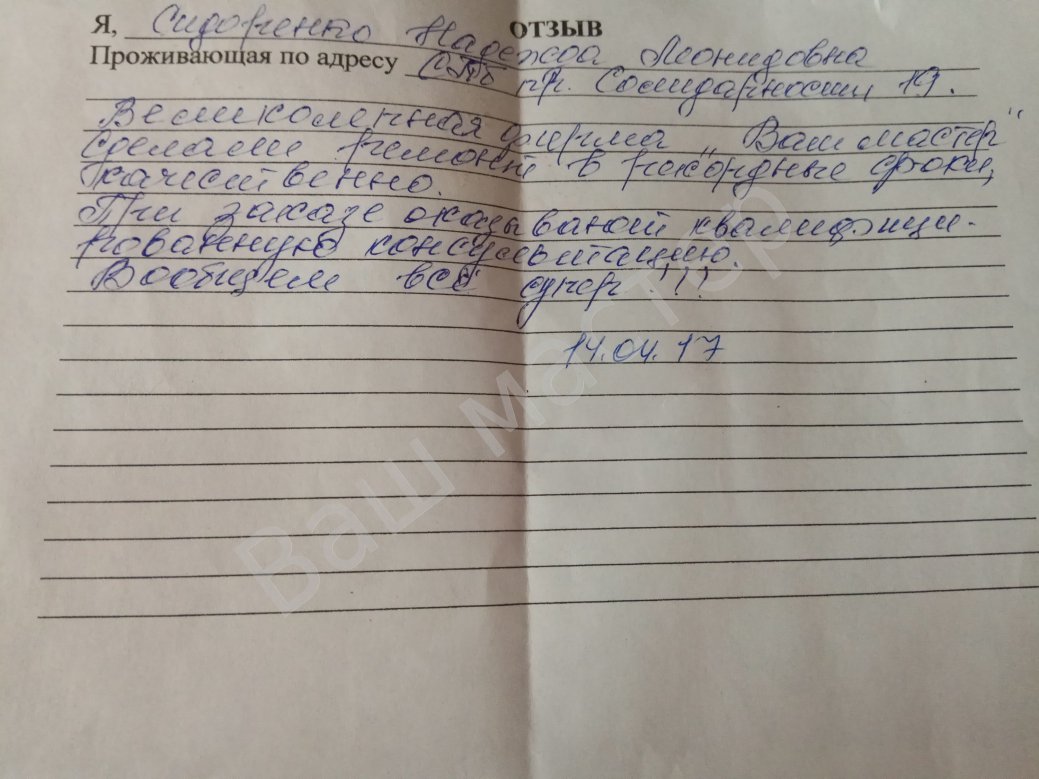 ОТЗЫВ
Я, Сидоренко Надежда Леонидовна
Проживающая по адресу СПб пр. Солидарности 19.
Великолепная фирма „Ваш мастер"
Сделали ремонт в рекордные сроки,
качественно.
При заказе оказывают квалифици-
рованную консультацию.
Вообщем всё супер!!!
14.04.17
Ваш мастер